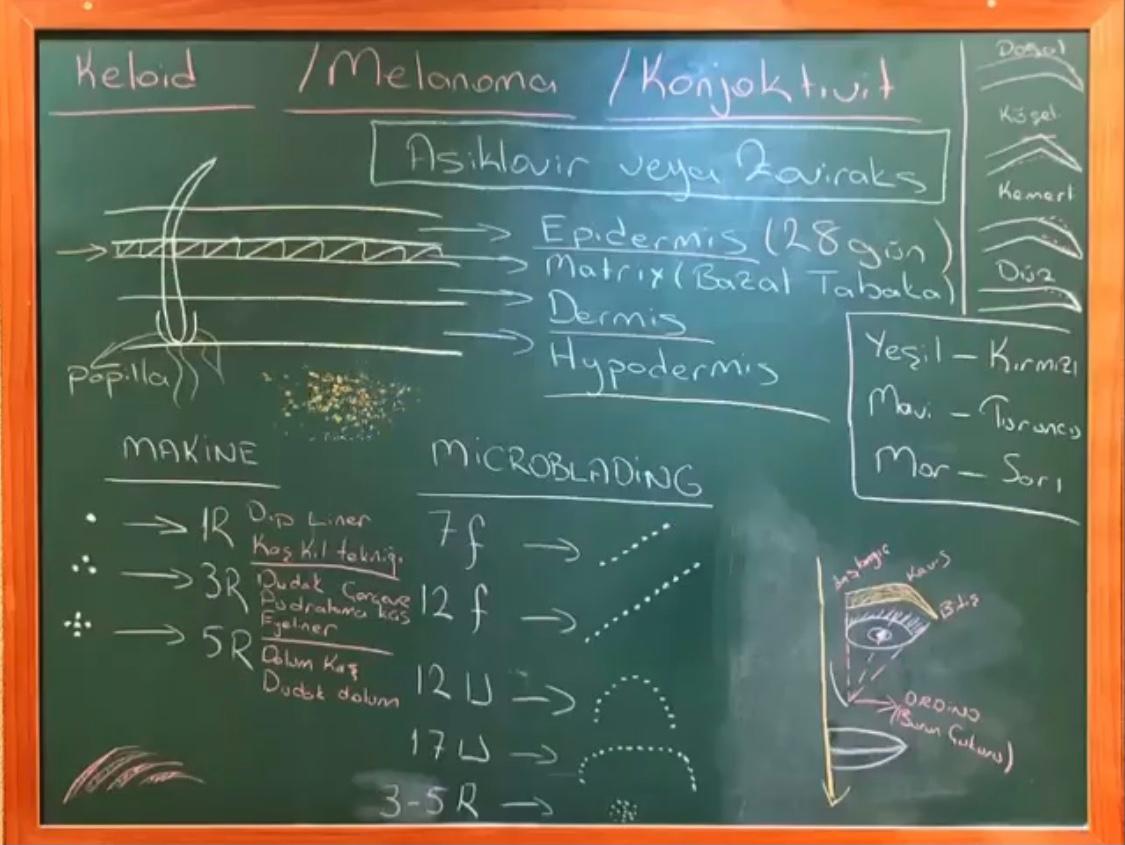 Keloid /Melanoma /Konjoktivit
Asiklovir veya Zoviraks
Epidermis (28 gün)
Matrix (Bazal Tabaka)
Dermis
Hypodermis
papilla
Doğal
Köşel
Kemerl
Düz
Yeşil – Kırmızı
Mavi – Turuncu
Mor – Sarı
MAKİNE
1R Dip Liner
Kaş Kıl tekniği
3R Dudak Çerçeve
Pudralama kaş
Eyeliner
5R Dolum Kaş
Dudak dolum
MİCROBLADİNG
7f
12 f
12 U
17 U
3-5 R
Başlangıç
Kavis
Bitiş
ORDİNO
(Burun Çukuru)